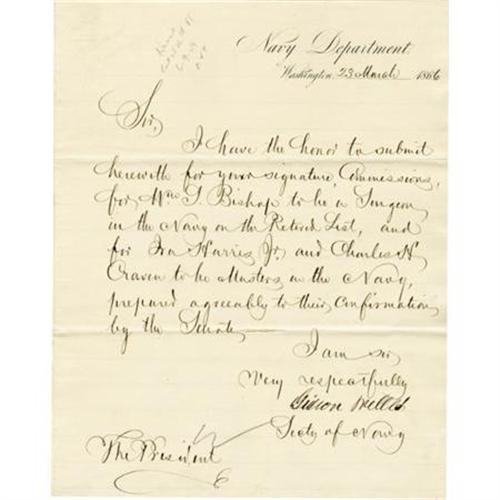 Navy Department,
Washington, 23 March 1866
Sir,
I have the honor to submit
herewith for your signature, Commissions,
for Wm. S. Bishop to be a Surgeon
in the Navy on the Retired List, and
for Ira Harris Jr. and Charles H.
Craven to be Masters in the Navy,
prepared agreeably to their confirmation
by the Senate,
I am sir,
Very respectfully
Gideon Welles
Secty of Navy
The President